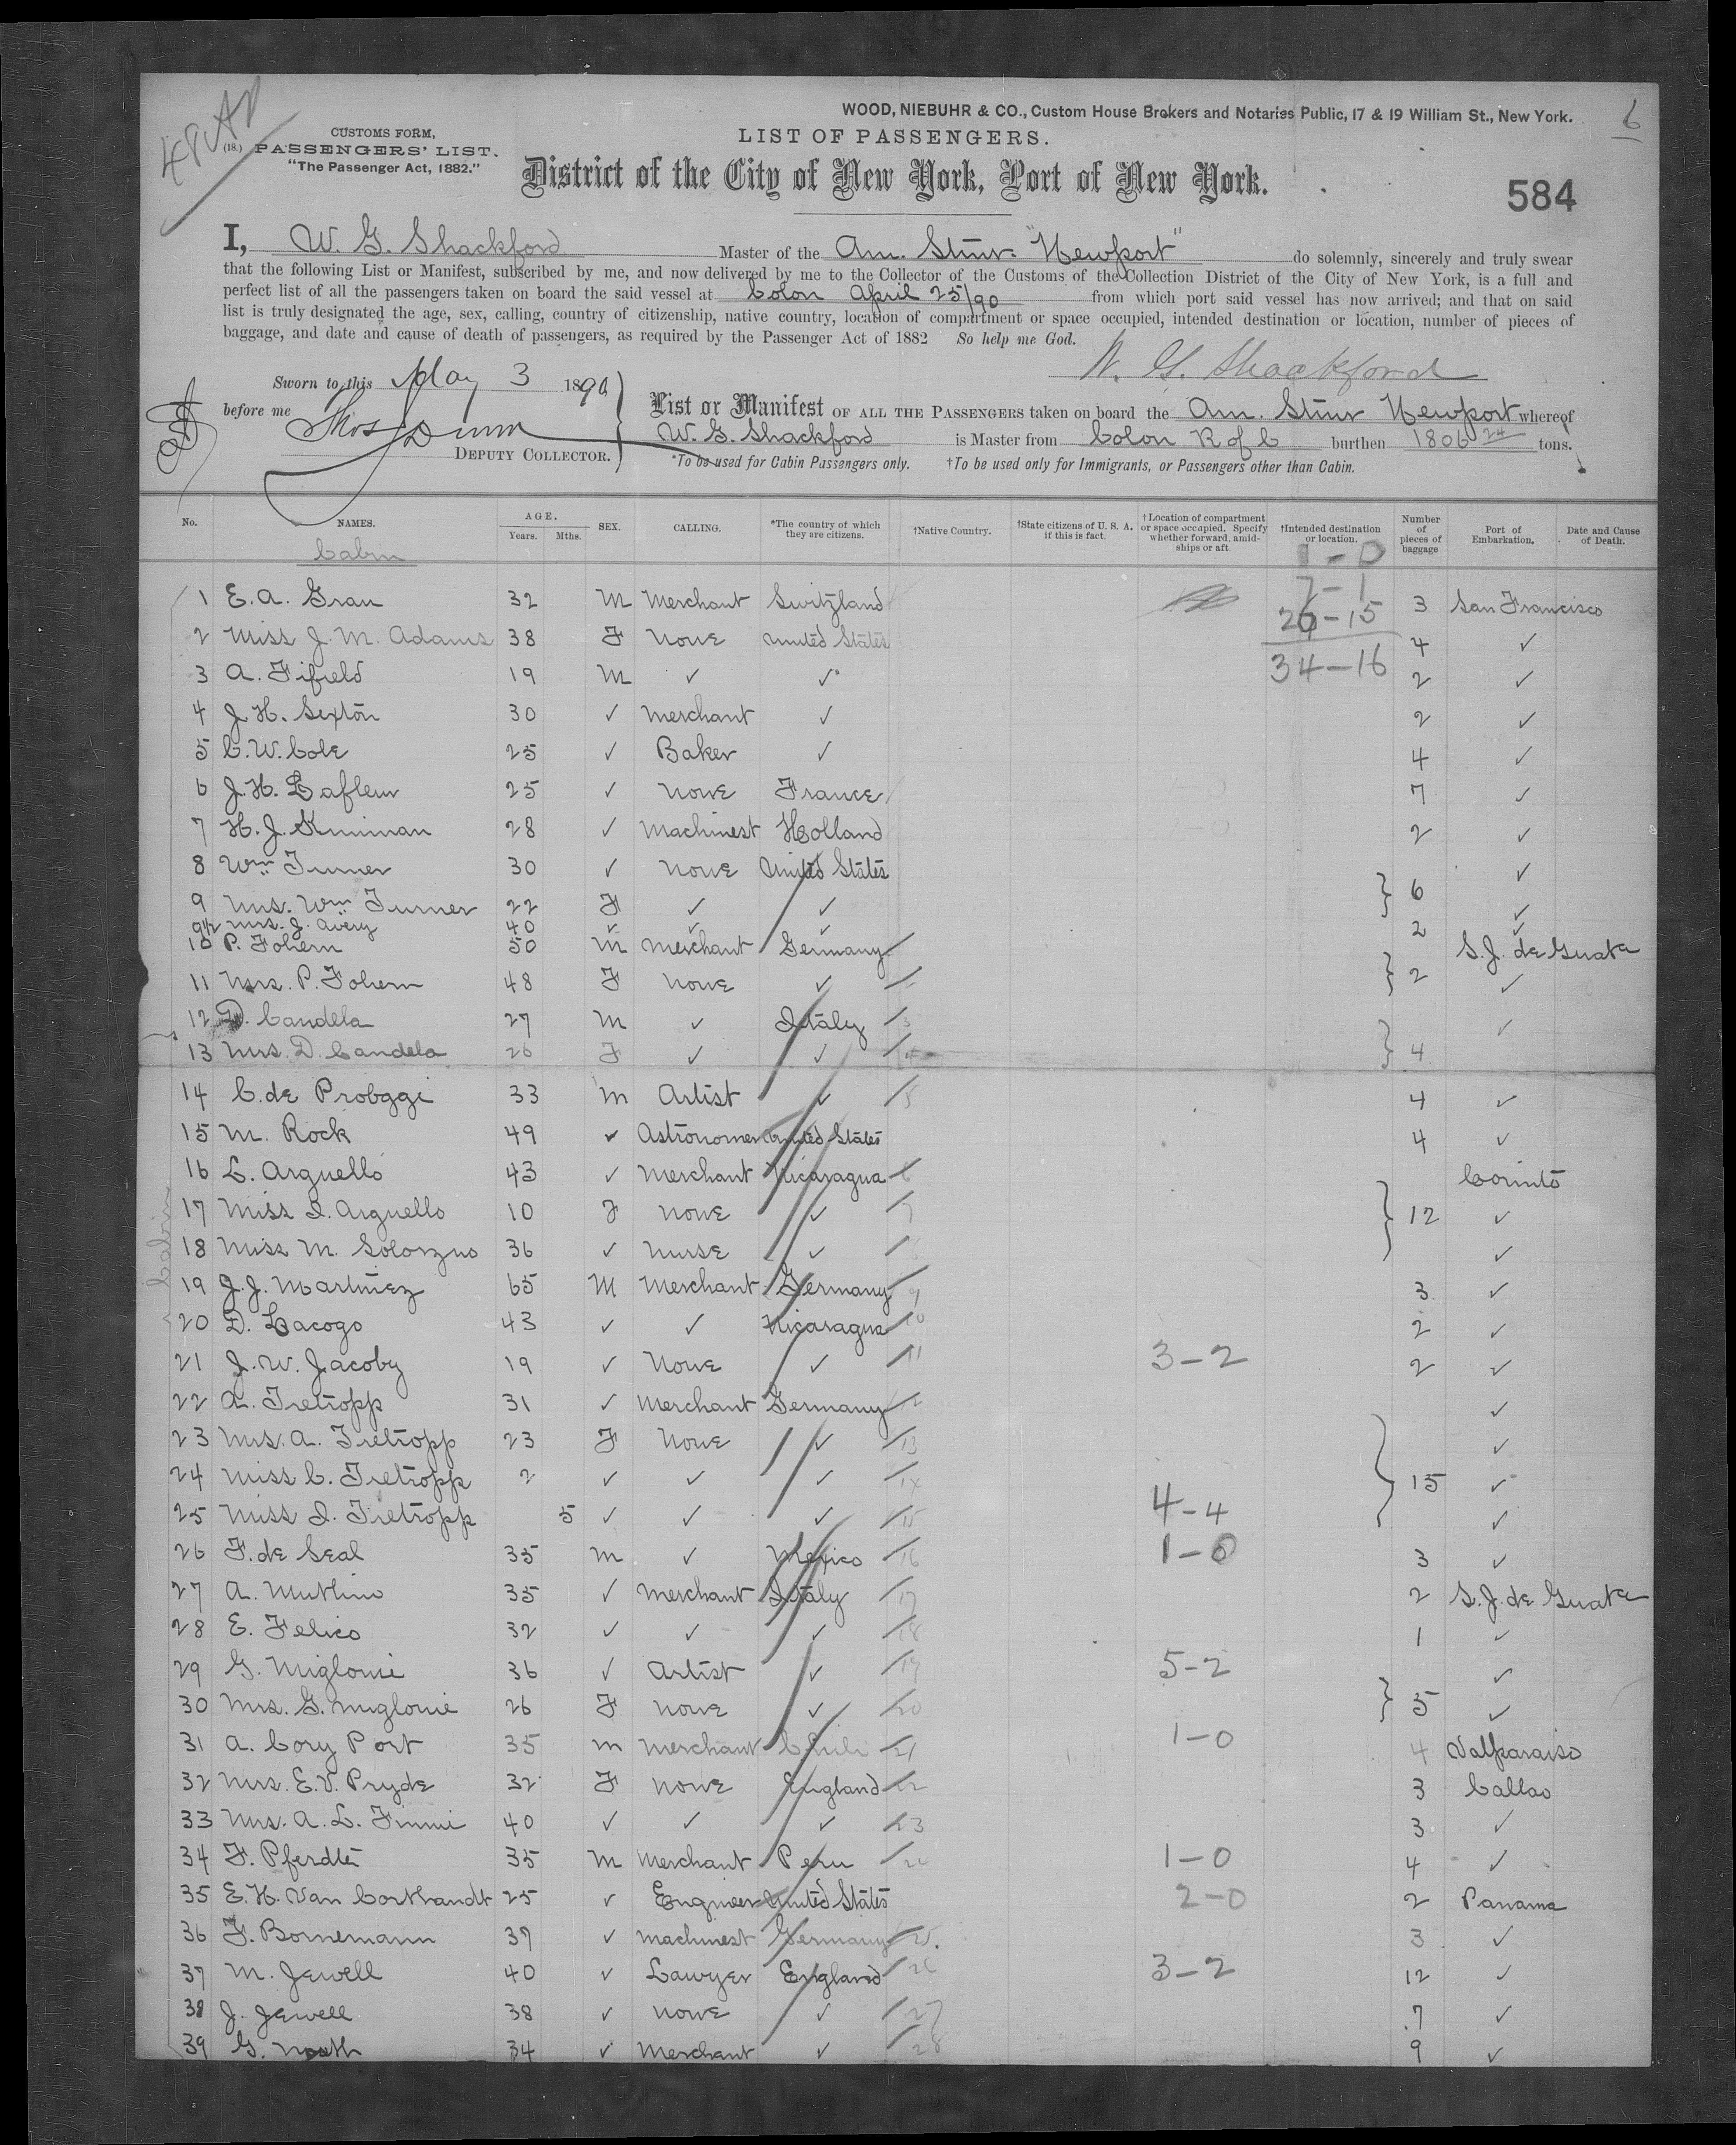 48 AD
WOOD, NIEBUHR & CO., Custom House Brokers and Notaries Public, 17 & 19 William St., New York.
6
CUSTOMS FORM,
(18.) PASSENGERS' LIST.
"The Passenger Act, 1882."
LIST OF PASSENGERS.
District of the City of New York, Port of New York.
584
I, W. G. Shackford Master of the Am. Stmr. "Newport" do solemnly, sincerely and truly swear
that the following List or Manifest, subscribed by me, and now delivered by me to the Collector of the Customs of the Collection District of the City of New York, is a full and
perfect list of all the passengers taken on board the said vessel at Colon April 25/90 from which port said vessel has now arrived; and that on said
list is truly designated the age, sex, calling, country of citizenship, native country, location of compartment or space occupied, intended destination or location, number of pieces of
baggage, and date and cause of death of passengers, as required by the Passenger Act of 1882 So help me God.
W. G. Shackford
Sworn to this May 3 1890
before me Thos J Dunn
DEPUTY COLLECTOR.
List or Manifest OF ALL THE PASSENGERS taken on board the Am. Stmr Newport whereof
W. G. Shackford is Master from Colon R of C burthen 1806 24 tons.
*To be used for Cabin Passengers only. †To be used only for Immigrants, or Passengers other than Cabin.
No. NAMES. AGE. Years. Mths. SEX. CALLING. *The country of which they are citizens. †Native Country. †State citizens of U. S. A. if this is fact. †Location of compartment or space occupied. Specify whether forward, amidships or aft. †Intended destination or location. Number of pieces of baggage Port of Embarkation. Date and Cause of Death.
Cabin 1-0
1 E. A. Gran 32 M Merchant Switzland 7-1 26-15 3 San Francisco
2 Miss J. M. Adams 38 F None United States 4 ✓
3 A. Fifield 19 M ✓ ✓ 34-16 2 ✓
4 J. H. Sexton 30 ✓ Merchant ✓ 2 ✓
5 C. W. Cole 25 ✓ Baker ✓ 4 ✓
6 J. H. Lafleur 25 ✓ None France 7 ✓
7 H. J. Kruiman 28 ✓ Machinest Holland 2 ✓
8 Wm Turner 30 ✓ None United States ✓
9 Mrs. Wm Turner 22 F ✓ ✓ 6 ✓
9½ Mrs. J. Avery 40 ✓ ✓ ✓ 2 ✓
10 P. Fohern 50 M Merchant Germany S. J. de Guata
11 Mrs. P. Fohern 48 F None ✓ 2 ✓
12 D. Candela 27 M ✓ Italy 3 ✓
13 Mrs. D. Candela 26 F ✓ ✓ 4 4
14 C. de Probggi 33 M Artist ✓ 5 4 ✓
15 M. Rock 49 ✓ Astronomer United States 4 ✓
16 L. Arguello 43 ✓ Merchant Nicaragua 6 Corinto
17 Miss I. Arguello 10 F None ✓ 7 12 ✓
18 Miss M. Solorzno 36 ✓ Nurse ✓ ✓
19 J. J. Martinez 65 M Merchant Germany 9 3 ✓
20 D. Lacogo 43 ✓ ✓ Nicaragua 10 2 ✓
21 J. W. Jacoby 19 ✓ None ✓ 11 3-2 2 ✓
22 A. Tietropp 31 ✓ Merchant Germany 12 ✓
23 Mrs. A. Tietropp 23 F None ✓ 13 ✓
24 Miss C. Tietropp 2 ✓ ✓ ✓ 14 15 ✓
25 Miss I. Tietropp 5 ✓ ✓ ✓ 15 4-4 ✓
26 F. de Seal 35 M ✓ Mexico 16 1-0 3 ✓
27 A. Muthino 35 ✓ Merchant Italy 17 2 S. J. de Guata
28 E. Felico 32 ✓ ✓ ✓ 18 1 ✓
29 G. Miglonie 36 ✓ Artist ✓ 19 5-2 ✓
30 Mrs. G. Miglonie 26 F None ✓ 20 5 ✓
31 A. Cory Port 35 M Merchant Chili 21 1-0 4 Valparaiso
32 Mrs. E. V. Pryde 32 F None England 22 3 Callao
33 Mrs. A. L. Finnie 40 ✓ ✓ ✓ 23 3 ✓
34 F. Pferdte 35 M Merchant Peru 24 1-0 4 ✓
35 E. H. Van Corthandt 25 ✓ Engineer United States 2-0 2 Panama
36 F. Bornemann 37 ✓ Machinest Germany 25. 3 ✓
37 M. Jewell 40 ✓ Lawyer England 26 3-2 12 ✓
38 J. Jewell 38 ✓ None ✓ 27 7 ✓
39 G. North 34 ✓ Merchant ✓ 28 9 ✓
Cabin